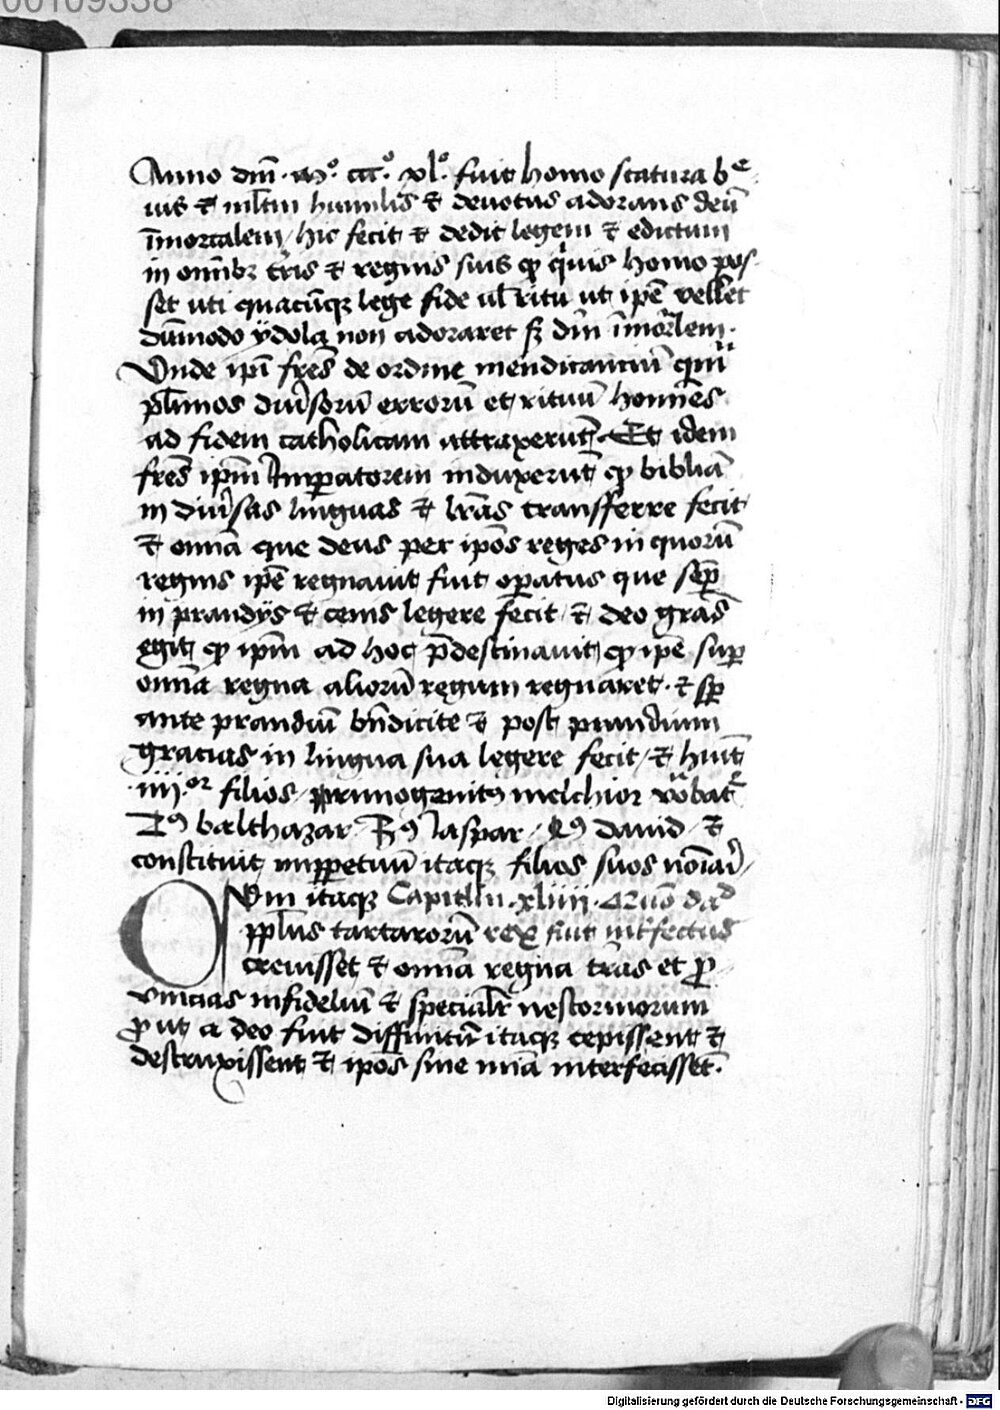 00109338
Anno dm̄ · mº · ccc̊ · xlº · fuit homo statura bᵉ
uis ⁊ ml̄tm humilis ⁊ deuotus adorans deū
īmortalem / hic fecit ⁊ dedit legem ⁊ edictum
in om̄ibꝫ tr̄is ⁊ regnis suis ꝙ qͥuis homo pos
set uti quacūqꝫ lege fide ul̄ ritu ut ip̄e vellet
dūmodo ydola non adoraret sꝫ dm̄ īmor̄lem ·
Vnde ip̄i fr̄es de ordine mendicanciū
pl̄imos diūsorū errorū et rituū homīes
ad fidem catholicam attraxerūt · Et idem
fr̄es ip̄m Imꝑatorem induxerūt ꝙ bibliā
in diūsas linguas ⁊ lr̄as transfferre fecit
⁊ omīa que deus per ip̄os reges in quorū
regnis ip̄e regnauit fuit oꝑatus que semꝑ
in prandijs ⁊ cenis legere fecit ⁊ deo gr̄as
egit ꝙ ip̄m ad hoc p̄destinauit ꝙ ip̄e suꝑ
omīa regna aliorū regum regnaret · ⁊ sꝑ
ante prandiū bn̄dicite ⁊ post prandium
gracias in lingua sua legere fecit / ⁊ huit̄
· iiij · ᵒʳ filios / primogenitꝰ melchior vͦcabat᷑
2ꝰ balthazar / 3ꝰ Jaspar / 4ꝰ dauid / ⁊
constituit imꝑpetuū itaqꝫ filios suos noīari /
Dvm itaqꝫ Capitl̄m · xliiij · Quō dauid
pp̄l̄us tartarorū rex fuit int̄fectus
creuisset ⁊ omīa regna tr̄as et ꝓ
uincias infideliū ⁊ specialr̄ nestorinorum
ꝓut a deo fuit diffinitū itaqꝫ cepissent ⁊
destruxissent ⁊ ip̄os sine mīa interfecissēt ·
Digitalisierung gefördert durch die Deutsche Forschungsgemeinschaft - DFG